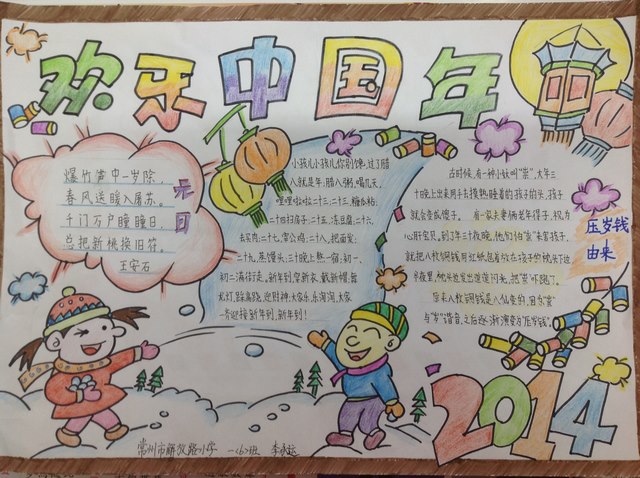 欢乐中国年
元日
爆竹声中一岁除，
春风送暖入屠苏。
千门万户曈曈日，
总把新桃换旧符。
王安石
小孩儿小孩儿你别馋，过了腊
八就是年，腊八粥，喝几天，
哩哩啦啦二十三，二十三，糖瓜粘，
二十四扫房子，二十五，冻豆腐，二十六，
去买肉，二十七，宰公鸡，二十八，把面发，
二十九，蒸馒头，三十晚上熬一宿，初一、
初二满街走。新年到，穿新衣，戴新帽，舞
龙灯，踩高跷，迎财神，大家乐，乐淘淘，大家
一齐迎接新年到，新年到！
压岁钱
由来
古时候，有一种小妖叫“祟”，大年三
十晚上出来用手去摸熟睡着的孩子的头，孩子
就会变成傻子。有一家夫妻俩老年得子，视为
心肝宝贝。到了年三十夜晚，他们怕“祟”来害孩子，
就把八枚铜钱用红纸包着放在孩子的枕头下边
半夜里，枕头边发出道道闪光，把“祟”吓跑了。
原来八枚铜钱是八仙变的，因为“祟”
与“岁”谐音，之后逐渐演变为“压岁钱”。
2014
常州市解放路小学 一〈6〉班 李永运